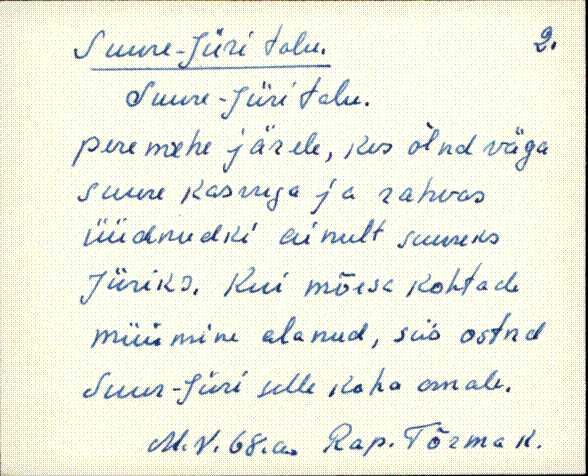 Suure-Jüri talu. 2.
Suure-Jüri talu.
peremehe järele, kes õlnd väga
suure kasvuga ja rahvas
üüdnudki ainult suureks
Jüriks. Kui mõesa kohtade
müümine alanud, siis ostnd
Suur-Jüri selle koha omale.
M.V. 68.a. Rap. Tõrma k.